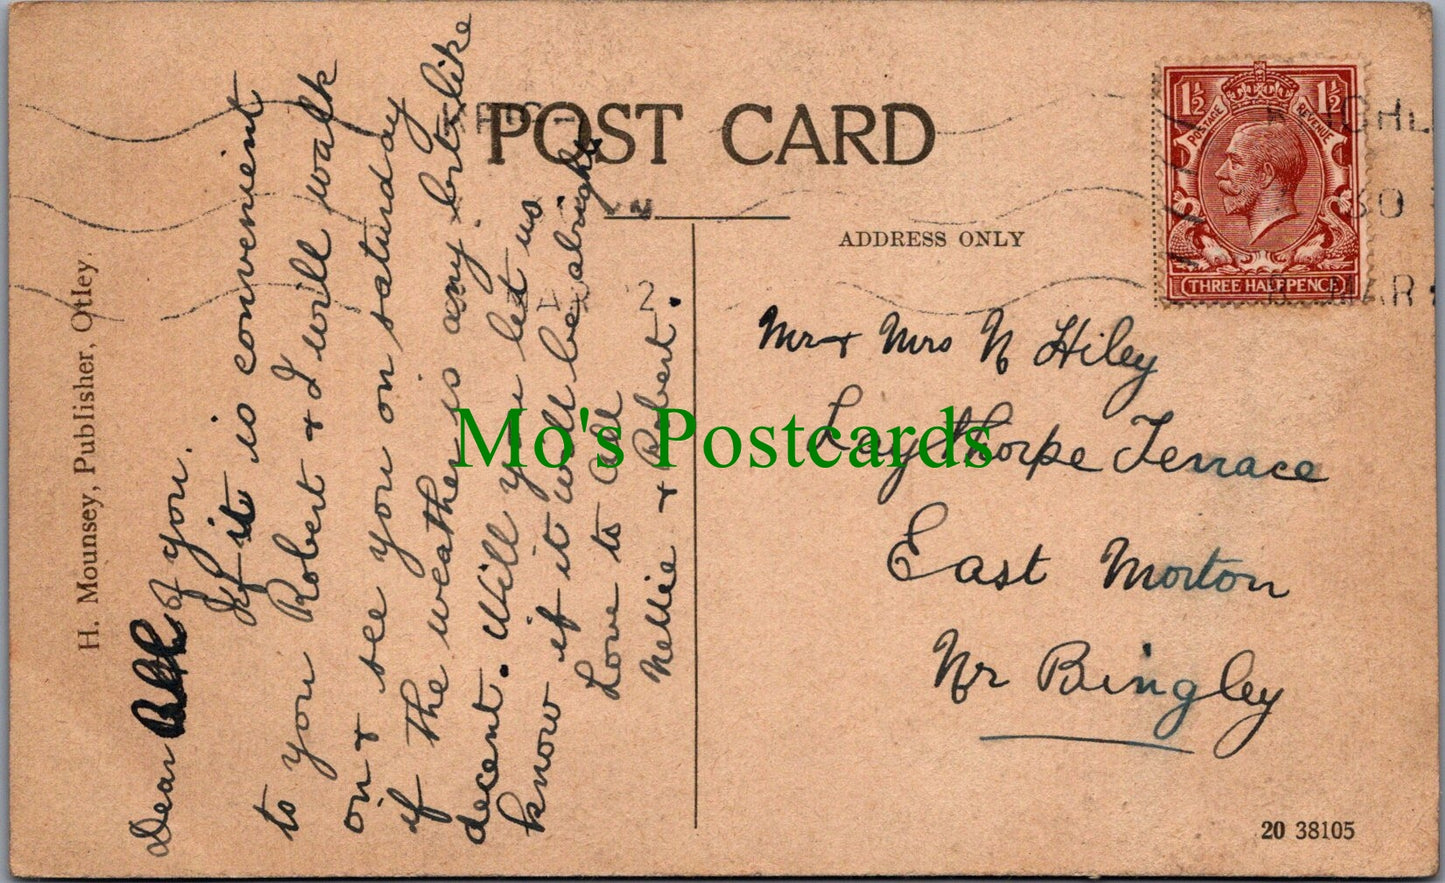 POST CARD
ADDRESS ONLY
H. Mounsey, Publisher, Otley.
Dear All of you.
If it is convenient
to you Robert & I will walk
on & see you on saturday
if the weather is any bit like
decent. Will you let us
know if it will be alright
Love to all
Nellie & Robert.
Mr & Mrs N Hiley
Leythorpe Terrace
East Morton
Nr Bingley
1½ 1½
POSTAGE REVENUE
THREE HALFPENCE
30
MAR
2
20 38105
Mo's Postcards